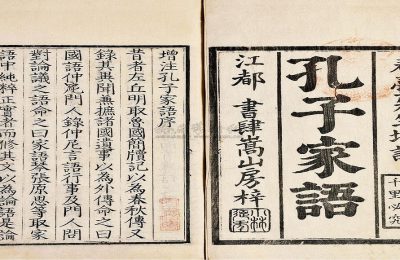 春臺先生增註 千里必究
孔子家語
江都 書肆嵩山房梓
增注孔子家語序
昔者左丘明取魯國簡牘記以為春秋傳又
錄其異聞兼摭諸國遺事以為外傳命之曰
國語仲尼門人錄仲尼言語行事及門人問
對論議之語命之曰家語琴張原思等取家
語中純粹正實者而修其文以為論語是論